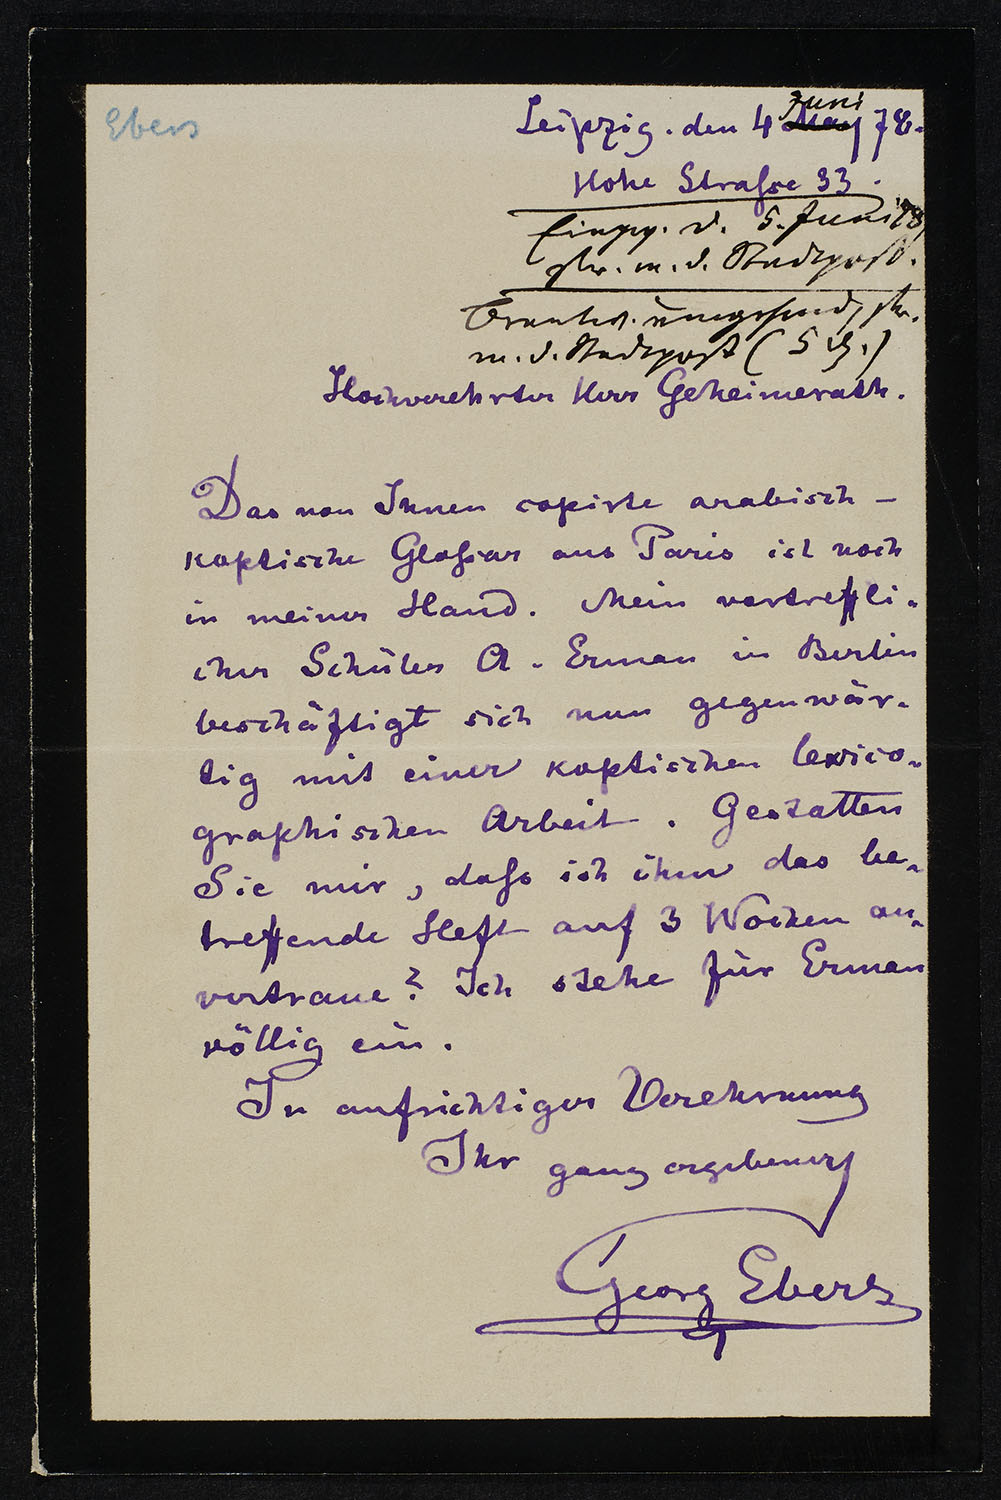 Ebers
Leipzig. den 4 May Juni 78.
Hohe Straße 33.
Eingg. d. 5. Juni 78,
m. d. Stadtpost.
Beantw. umgehend,
m. d. Stadtpost (5 )
Hochverehrter Herr Geheimerath.
Das von Ihnen copirte arabisch –
koptische Gloßar aus Paris ist noch
in meiner Hand. Mein vortreffli-
cher Schüler A. Erman in Berlin
beschäftigt sich nun gegenwär-
tig mit einer koptischen lexico-
graphischen Arbeit. Gestatten
Sie mir, daß ich ihm das be-
treffende Heft auf 3 Wochen an-
vertraue? Ich stehe für Erman
völlig ein.
In aufrichtiger Verehrnung
Ihr ganz ergebener
Georg Ebers